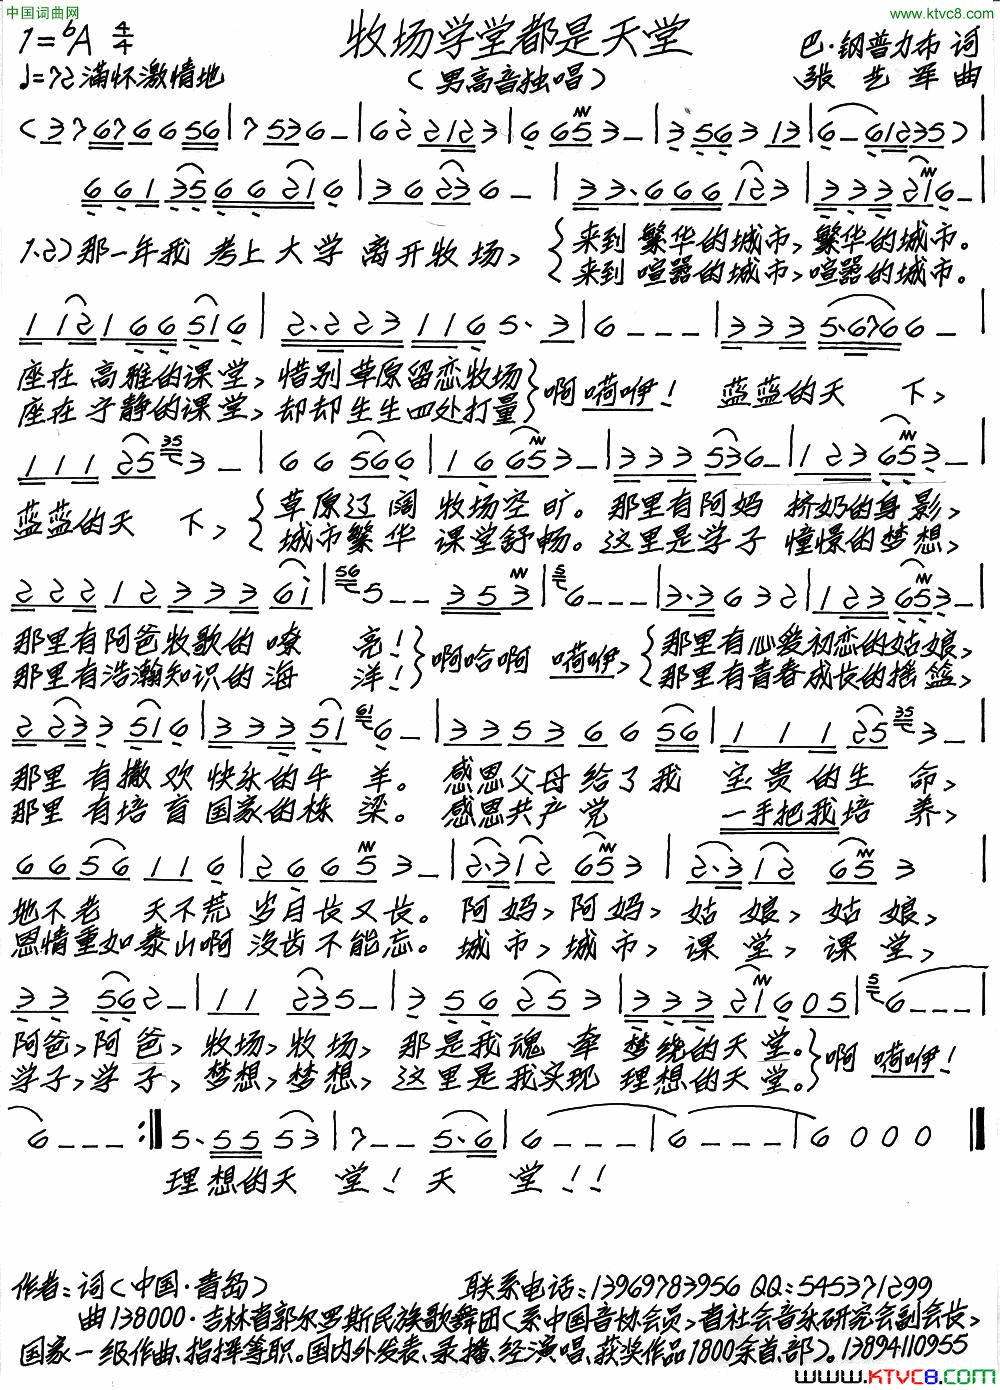 中国词曲网
www.ktvc8.com
1=♭A 4/4
牧场学堂都是天堂
巴·钢普力布 词
♩=72 满怀激情地
(男高音独唱)
张艺军 曲
(3767 6656|7536-|622123|6653-|356313|6-61235)
661356621 6|36236-|33·666123|333216-|
1.2)那一年我 考上大学 离开牧场,
来到繁华的城市,繁华的城市。
来到喧嚣的城市,喧嚣的城市。
1121665 16|2·2231165·3|6---|3335·6766-|
座在高雅的课堂,惜别草原留恋牧场
啊嗬咿! 蓝蓝的天 下,
座在宁静的课堂,却却生生四处打量
111253-|66566|16653-|3335 36-|1236 53-|
蓝蓝的天 下,
草原辽阔 牧场空旷。那里有阿妈 挤奶的身影,
城市繁华 课堂舒畅。这里是学子 憧憬的梦想,
2221233361|5--353|6---|3·3632|1236 53-|
那里有阿爸牧歌的嘹 亮!
啊哈啊 嗬咿,
那里有心爱初恋的姑娘,
那里有浩瀚知识的海 洋!
那里有青春成长的摇篮,
2233516|333516-|33536656|111253-|
那里有撒欢快乐的牛 羊。感恩父母给了我 宝贵的生 命,
那里有培育国家的栋 梁。感恩共产党 一手把我培 养,
6656116|26653-|2·312653|2·312 653|
地不老 天不荒 岁月长又长。阿妈,阿妈,姑娘,姑娘,
恩情重如泰山啊 没齿不能忘。城市,城市,课堂,课堂,
33562-|11235-|356253|333216 05|6---|
阿爸,阿爸,牧场,牧场,那是我魂牵 梦绕的天堂。
啊 嗬咿!
学子,学子,梦想,梦想,这里是我实现 理想的天堂。
6---:‖5·5553|7--5·6|6---|6---|6000‖
理想的天 堂!天 堂!!
作者:词(中国·青岛)
联系电话:13969783956 QQ:545371299
曲138000·吉林省郭尔罗斯民族歌舞团(系中国音协会员,省社会音乐研究会副会长,
国家一级作曲、指挥等职。国内外发表、录播、经演唱、获奖作品1800余首、部)。13894110955
www.KTVC8.com